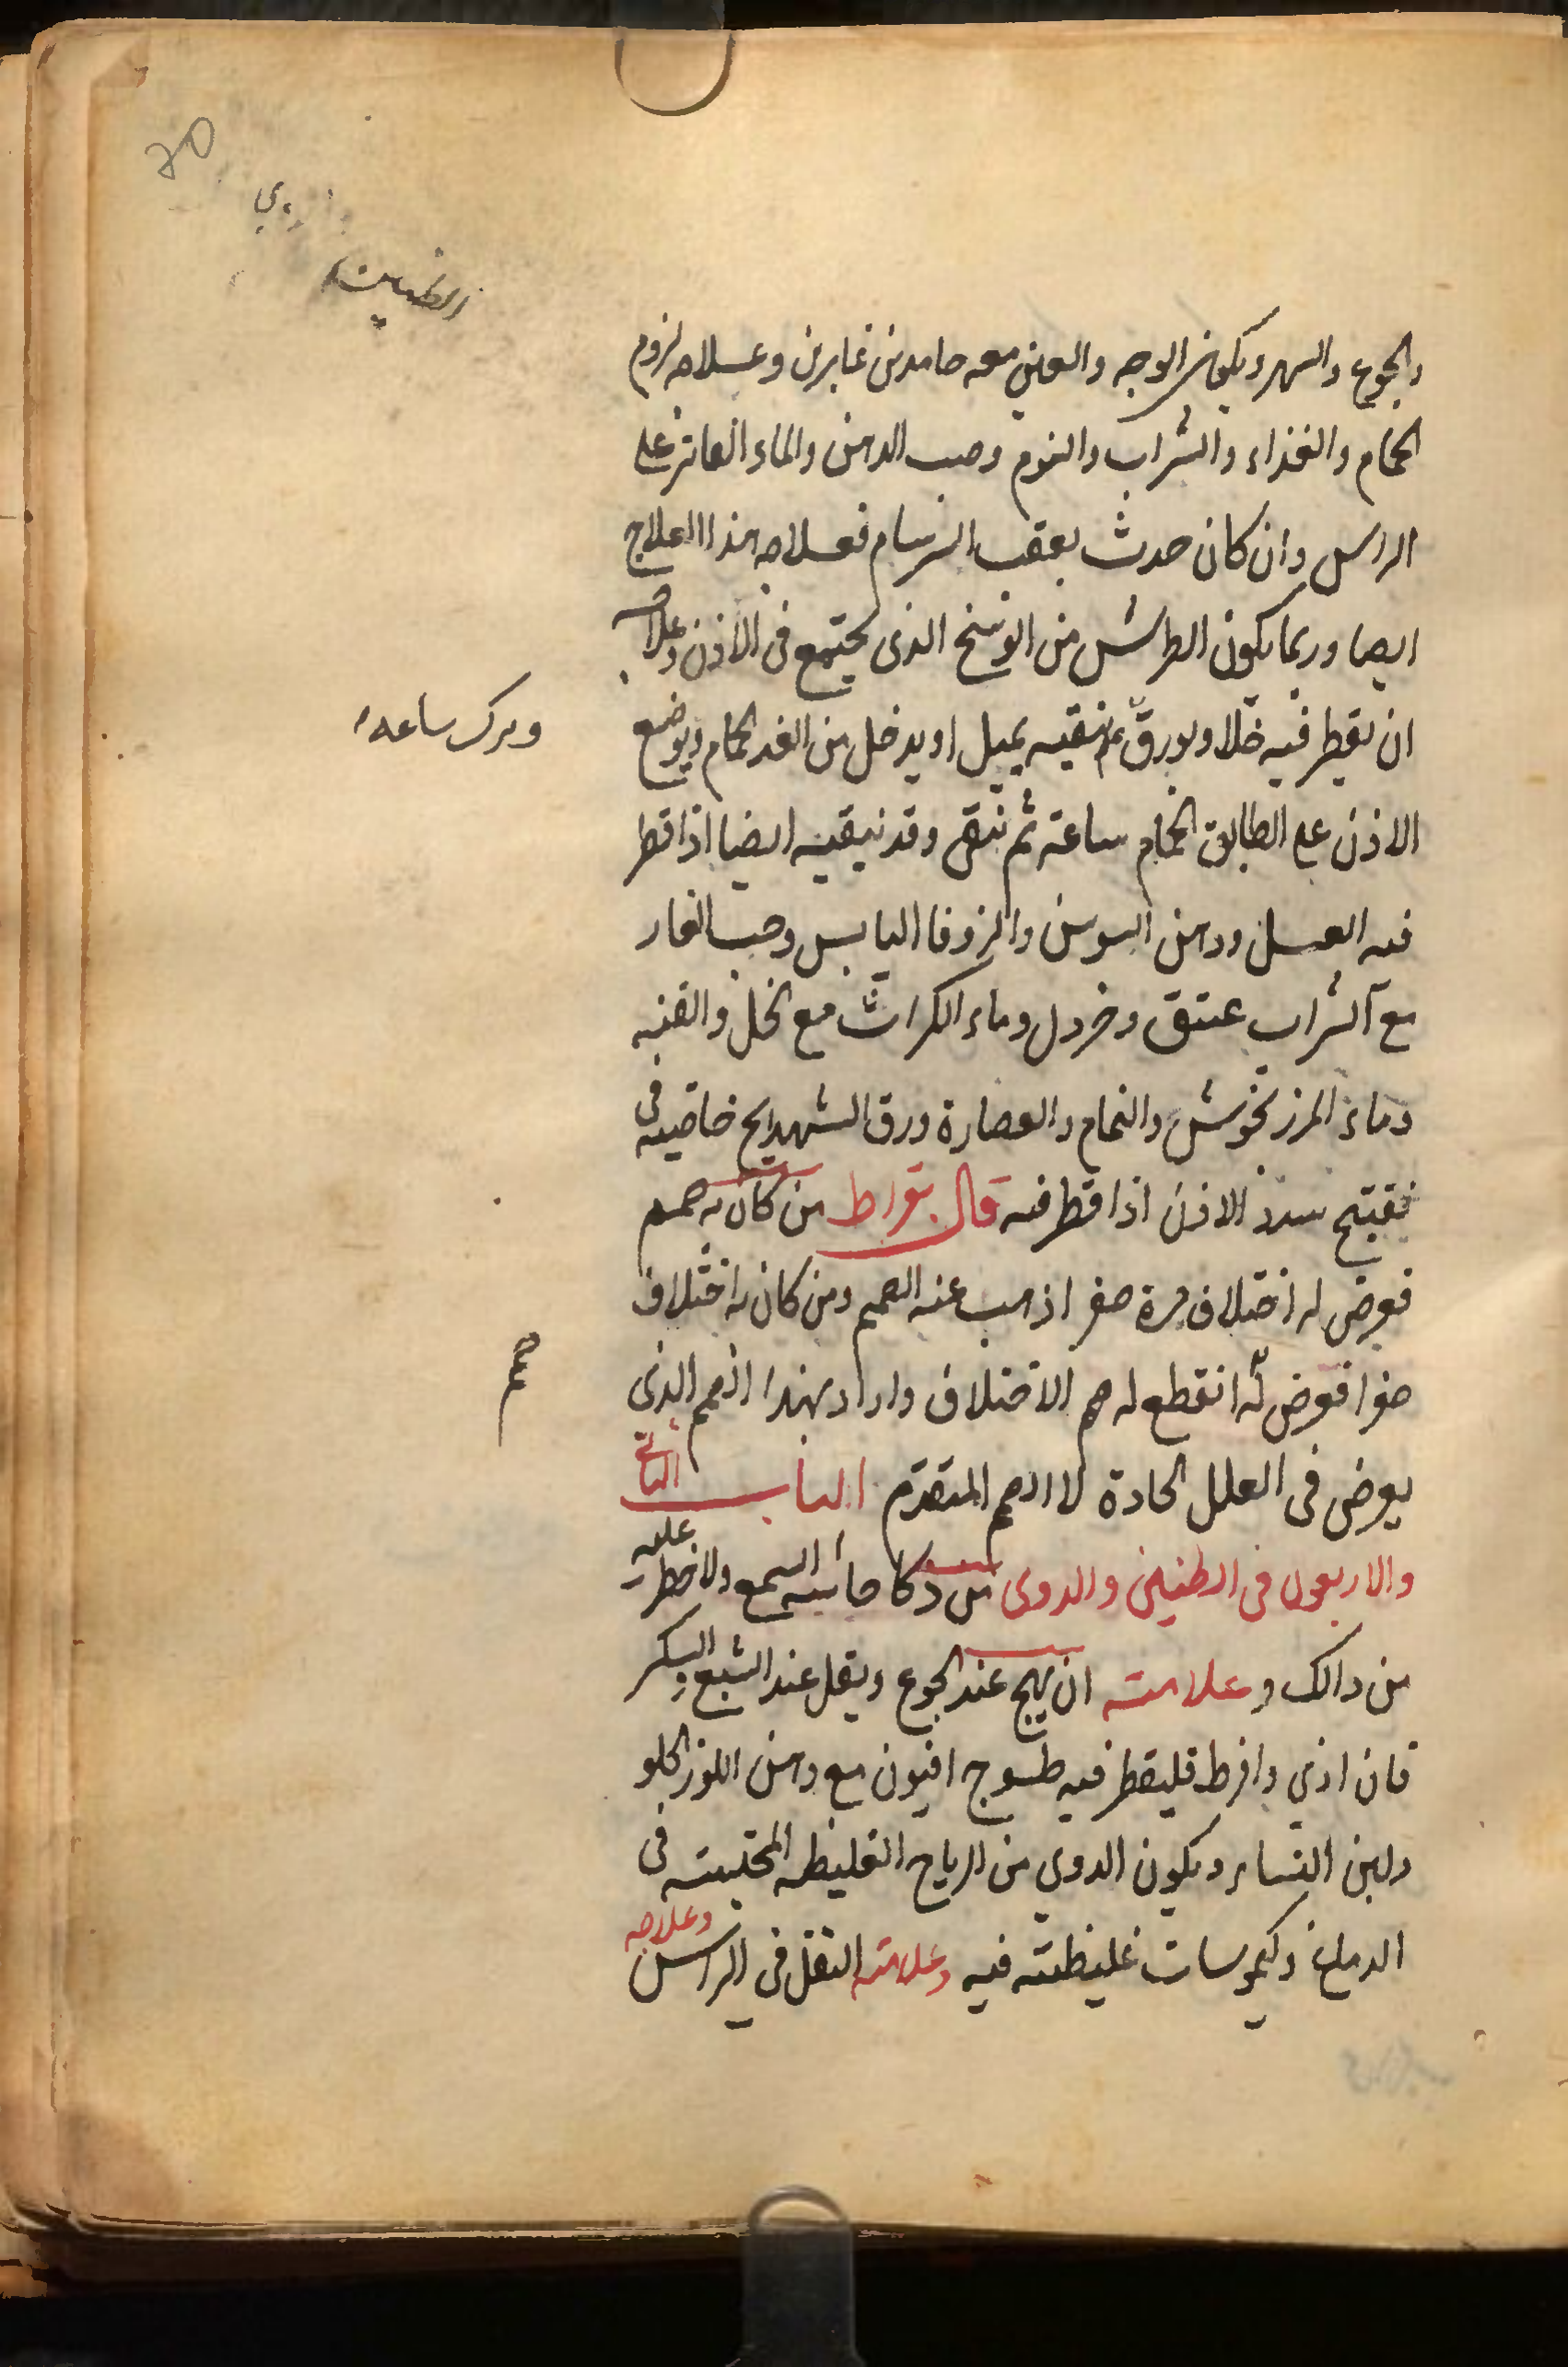 والجوع والسهر ويكون الوجه والعين معه جامدين غابرين وعلاجه لزوم
الحمام والغذاء والشراب والنوم وصب الدهن والماء الفاتر على
الراس وان كان حدث بعقب السرسام فعلاجه هذا العلاج
ايضا وربما يكون الطرش من الوسخ الذى يجتمع فى الاذن وعلاجه
ان يقطر فيه خلا وبورق ثم ينقيه بميل او يدخل من الغد الحمام ويوضع
ويترك ساعه
الاذن على الطابق الحمام ساعة ثم ينقى وقد ينقيه ايضا اذا قطر
فيه العسل ودهن السوسن والزوفا اليابس وحب الغار
مع الشراب عتيق وخردل وماء الكراث مع الخل والقنه
وماء المرزنجوش والنمام والعصارة ورق الشهدانج خاصيه فى
تفتيح سدد الاذن اذا قطر فيه قال بقراط من كان به صمم
فعرض له اختلاف مرة صفرا ذهب عنه الصمم ومن كان به اختلاف
صفرا فعرض له انقطع له صمم الاختلاف واراد بهذا الصمم الذى
صمم
يعرض فى العلل الحادة لا الصمم المتقدم الباب الثانى
والاربعون فى الطنين والدوى من ذكا حاسه السمع ولا خطر عليه
من ذالك وعلامته ان يهيج عند الجوع ويقل عند الشبع والسكر
فان اذي وافرط فليقطر فيه طسوج افيون مع دهن اللوز الحلو
ولبن النساء ويكون الدوي من الرياح الغليظه المحتبسه فى
الدماغ وكيموسات غليظته فيه وعلامته الثقل فى الراس وعلاجه
الطنين